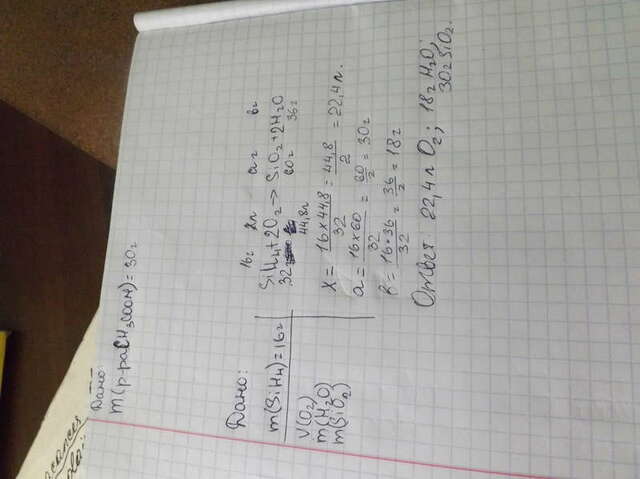 Дано:
m(р-раCH3COOH)=30г
Дано:
m(SiH4)=16г
V(O2)
m(H2O)
m(SiO2)
16г хл аг вг
SiH4+2O2→SiO2+2H2O
32г 44,8л 60г 36г
X = 16×44,8/32 = 44,8/2 = 22,4л.
a = 16×60/32 = 60/2 = 30г
в = 16×36/32 = 36/2 = 18г
Ответ: 22,4л O2; 18г H2O;
30г SiO2.